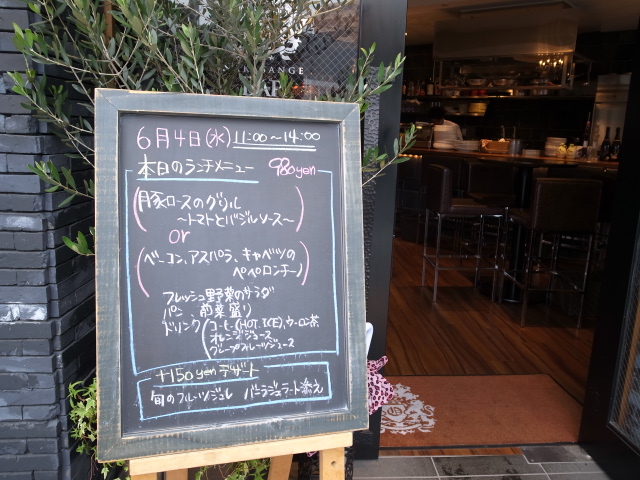 ANGE
6月4日(水) 11:00〜14:00
本日のランチメニュー 980yen
豚ロースのグリル
〜トマトとバジルソース〜
or
ベーコン、アスパラ、キャベツの
ペペロンチーノ
フレッシュ野菜のサラダ
パン、前菜盛り
ドリンク(コーヒー(HOT,ICE)、ウーロン茶
オレンジジュース
グレープフルーツジュース
+150yenデザート
旬のフルーツジュレ バニラジェラート添え